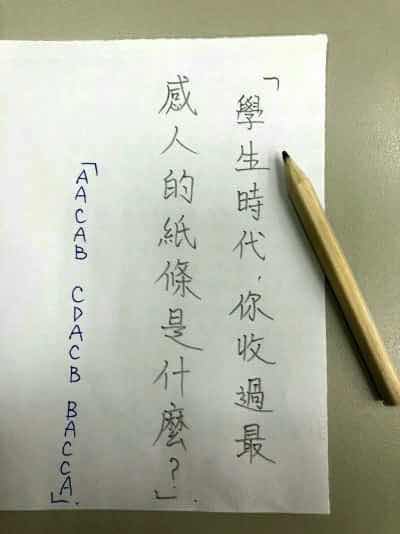 「學生時代，你收過最
感人的紙條是什麼？」.
「AACAB CDACB BACCA」.